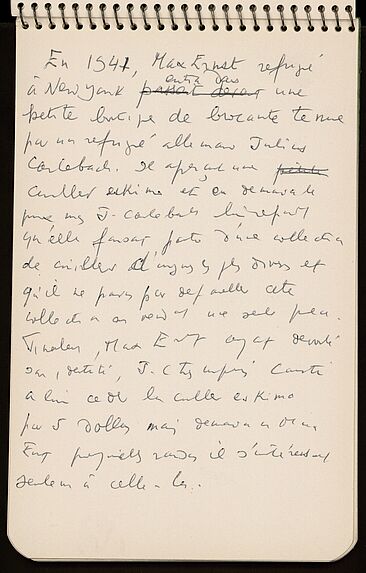 En 1941, Max Ernst refugié
à New York entra dans une
petite boutique de brocante tenue
par un refugié allemand Julius
Carlebach. Il aperçut une
cuiller eskimo et en demanda le
prix mais J. Carlebach lui répond
qu'elle faisait partie d'une collection
de cuillers d'origines les plus diverses et
qu'il ne pouvait pas défaire cette
collection en vendant une seule pièce.
Max Ernst ayant dévoilé
son identité, J. C.
à lui céder la cuiller eskimo
pour 5 dollars mais demanda à Max
Ernst pour quelle raison il s'intéressait
seulement à celle-là..